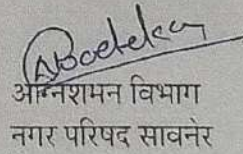 अग्निशमन विभाग
नगर परिषद सावनेर